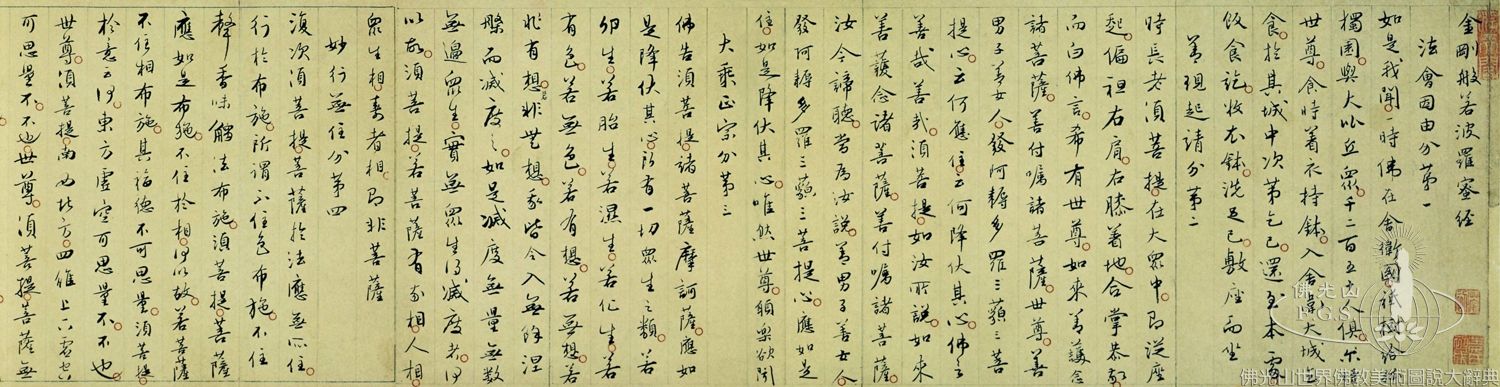 金剛般若波羅蜜経
法會因由分第一
如是我聞一時佛在舍衛國祇樹給孤
獨園與大比丘眾千二百五十人俱尒時
世尊食時着衣持鉢入舍衛大城乞
食於其城中次第乞已還至本處
飯食訖收衣鉢洗足已敷座而坐
善現起請分第二
時長老須菩提在大眾中即從座
起偏袒右肩右膝着地合掌恭敬
而白佛言希有世尊如來善護念
諸菩薩善付嘱諸菩薩世尊善
男子善女人發阿耨多羅三藐三菩
提心云何應住云何降伏其心佛言
善哉善哉須菩提如汝所說如來
善護念諸菩薩善付嘱諸菩薩
汝今諦聽當為汝說善男子善女人
發阿耨多羅三藐三菩提心應如是
住如是降伏其心唯然世尊願樂欲聞
大乘正宗分第三
佛告須菩提諸菩薩摩訶薩應如
是降伏其心所有一切眾生之類若
卵生若胎生若濕生若化生若
有色若無色若有想若無想若
非有想非無想我皆令入無餘涅
槃而滅度之如是滅度無量無數
無邊眾生實無眾生得滅度者何
以故須菩提若菩薩有我相人相
眾生相壽者相即非菩薩
妙行無住分第四
復次須菩提菩薩於法應無所住
行於布施所謂不住色布施不住
聲香味觸法布施須菩提菩薩
應如是布施不住於相何以故若菩薩
不住相布施其福德不可思量須菩提
於意云何東方虛空可思量不不也
世尊須菩提南西北方四維上下虛空
可思量不不也世尊須菩提菩薩無
佛光山
F.G.S.
佛光山世界佛教美術圖說大辭典